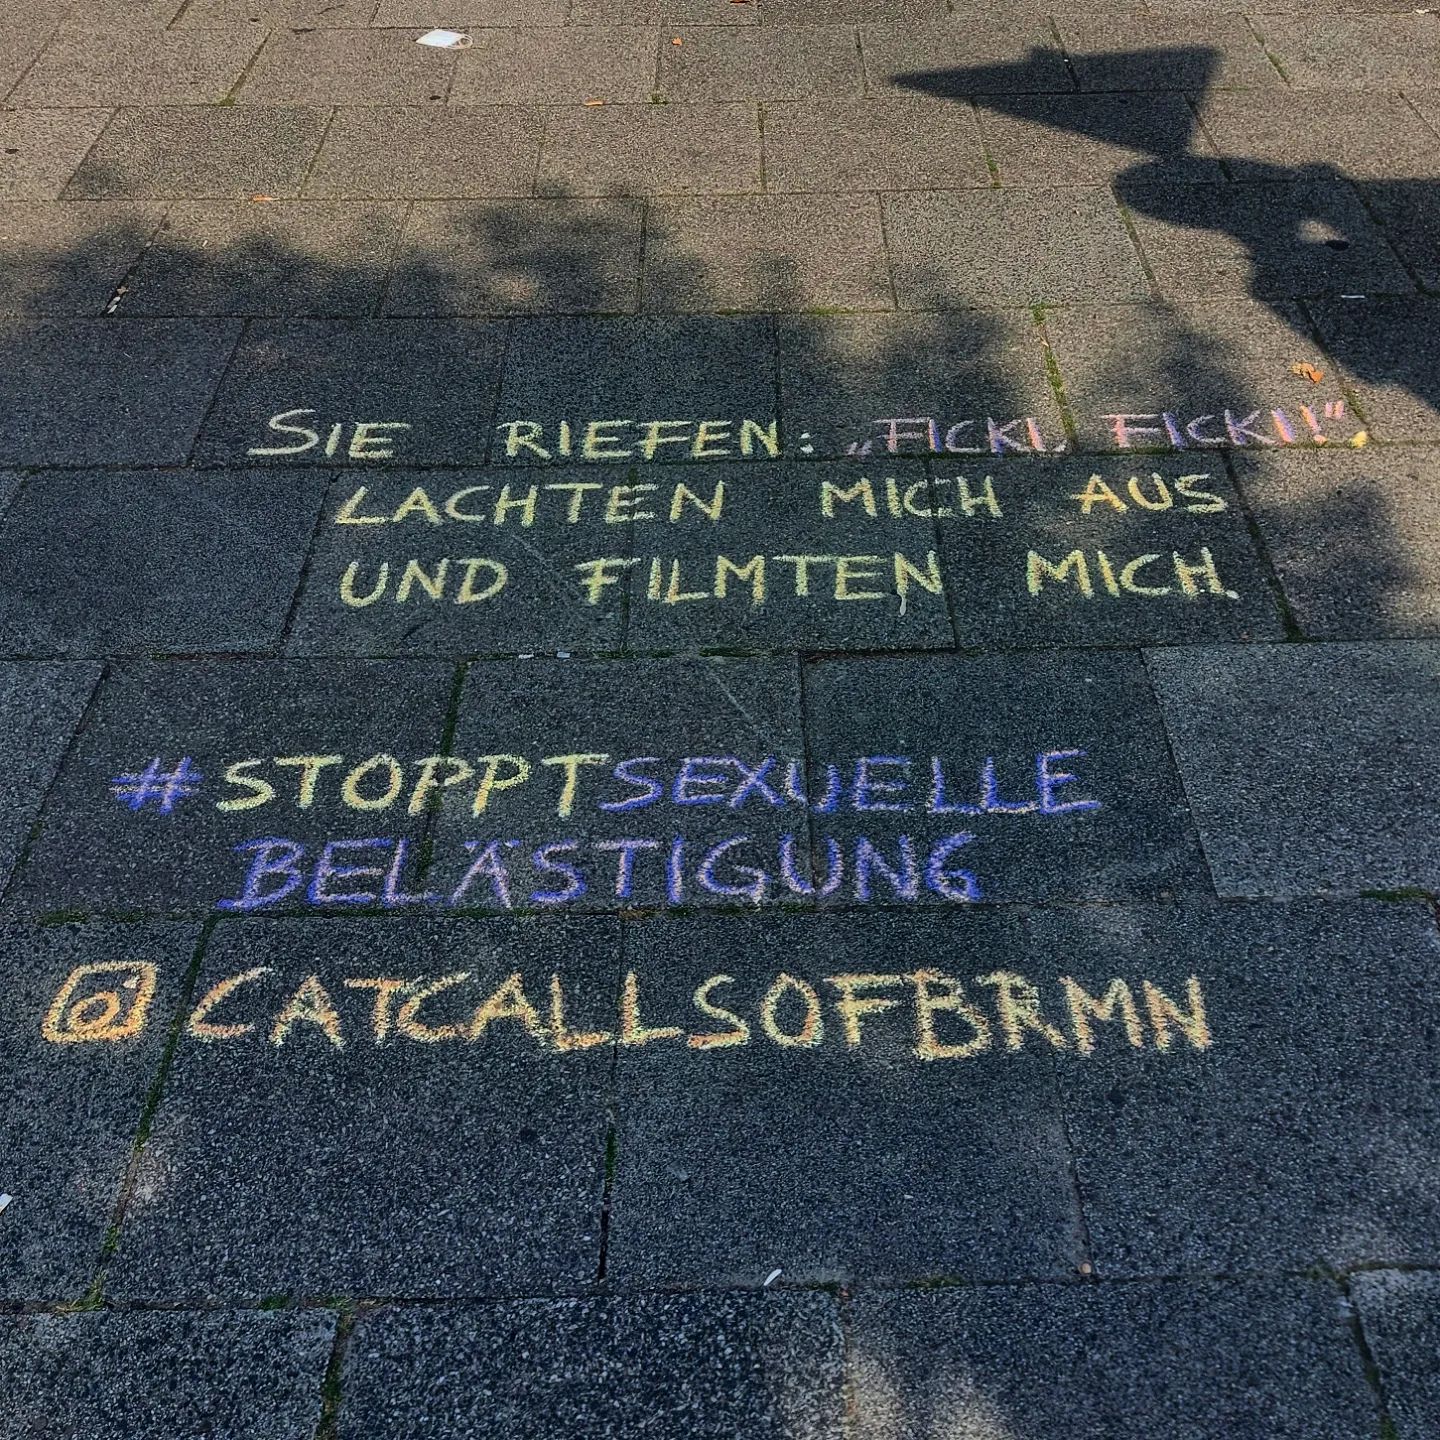 SIE RIEFEN: „FICKI FICKI!",
LACHTEN MICH AUS
UND FILMTEN MICH.
#STOPPTSEXUELLE
BELÄSTIGUNG
@CATCALLSOFBRMN